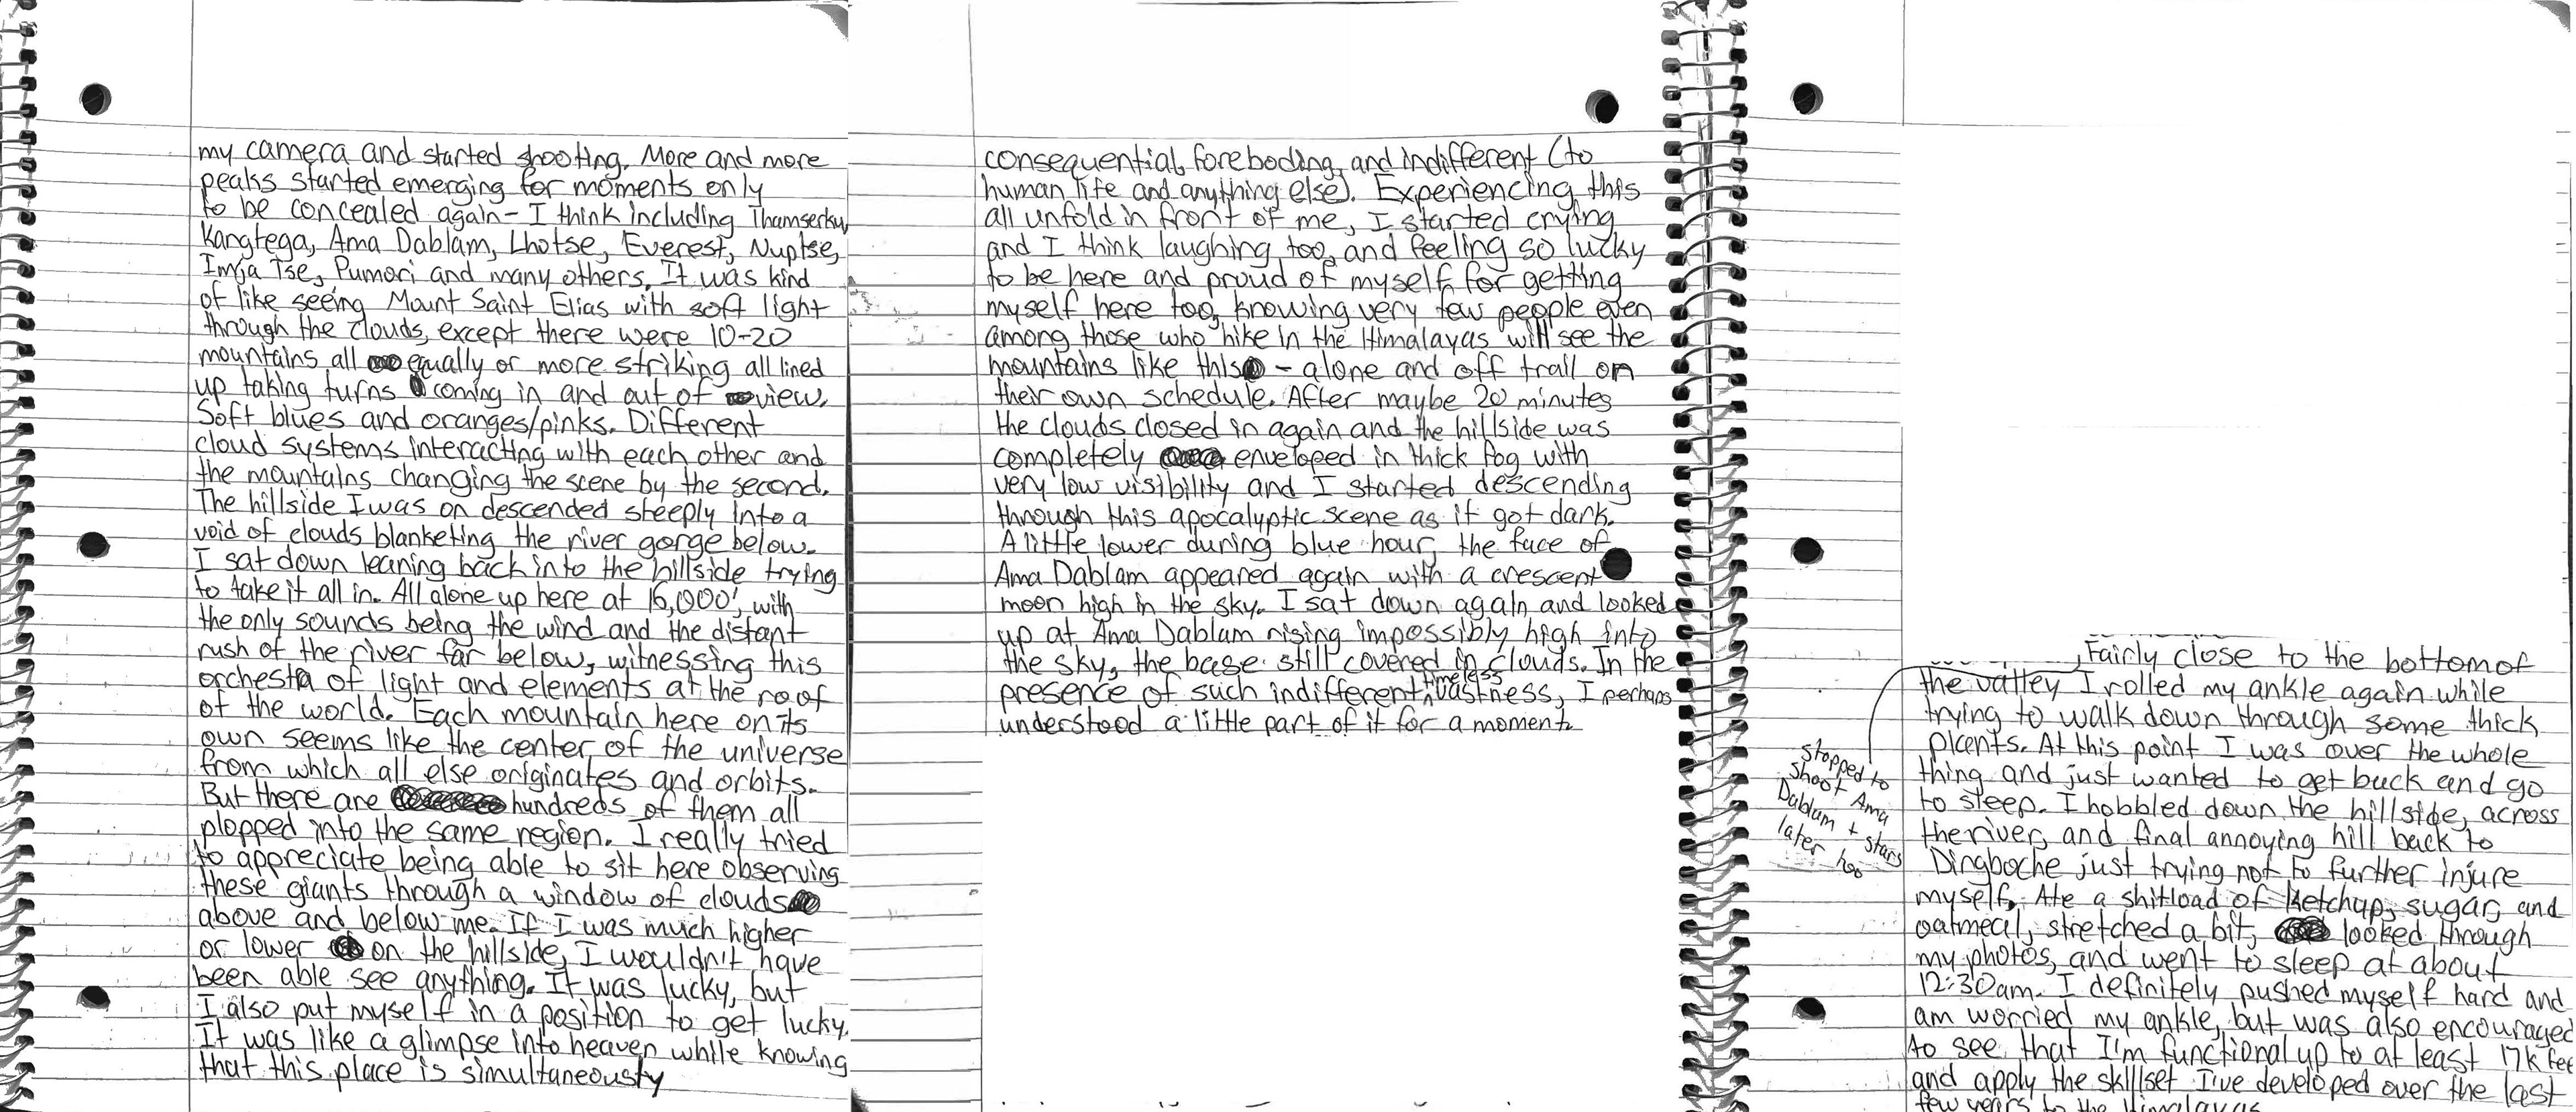 my camera and started shooting. More and more
peaks started emerging for moments only
to be concealed again - I think including Thamserku,
Kangtega, Ama Dablam, Lhotse, Everest, Nuptse,
Imja Tse, Pumori and many others. It was kind
of like seeing Mount Saint Elias with soft light
through the clouds, except there were 10-20
mountains all equally or more striking all lined
up taking turns coming in and out of view.
Soft blues and oranges/pinks. Different
cloud systems interacting with each other and
the mountains changing the scene by the second.
The hillside I was on descended steeply into a
void of clouds blanketing the river gorge below.
I sat down leaning back into the hillside trying
to take it all in. All alone up here at 16,000', with
the only sounds being the wind and the distant
rush of the river far below, witnessing this
orchestra of light and elements at the roof
of the world. Each mountain here on its
own seems like the center of the universe
from which all else originates and orbits.
But there are hundreds of them all
plopped into the same region. I really tried
to appreciate being able to sit here observing
these giants through a window of clouds
above and below me. If I was much higher
or lower on the hillside, I wouldn't have
been able see anything. It was lucky, but
I also put myself in a position to get lucky.
It was like a glimpse into heaven while knowing
that this place is simultaneously
consequential, foreboding, and indifferent (to
human life and anything else). Experiencing this
all unfold in front of me, I started crying
and I think laughing too, and feeling so lucky
to be here and proud of myself for getting
myself here too, knowing very few people even
among those who hike in the Himalayas will see the
mountains like this - alone and off trail on
their own schedule. After maybe 20 minutes
the clouds closed in again and the hillside was
completely enveloped in thick fog with
very low visibility and I started descending
through this apocalyptic scene as it got dark.
A little lower during blue hour, the face of
Ama Dablam appeared again with a crescent
moon high in the sky. I sat down again and looked
up at Ama Dablam rising impossibly high into
the sky, the base still covered in clouds. In the
presence of such indifferent, timeless vastness, I perhaps
understood a little part of it for a moment.
Fairly close to the bottom of
the valley I rolled my ankle again while
trying to walk down through some thick
plants. At this point I was over the whole
thing and just wanted to get back and go
to sleep. I hobbled down the hillside, across
the river, and final annoying hill back to
Dingboche just trying not to further injure
myself. Ate a shitload of ketchup, sugar, and
oatmeal, stretched a bit, looked through
my photos, and went to sleep at about
12:30am. I definitely pushed myself hard and
am worried my ankle, but was also encouraged
to see that I'm functional up to at least 17k fee
and apply the skillset I've developed over the last
few years to the Himalayas
stopped to
shoot Ama
Dablam + stars
later too